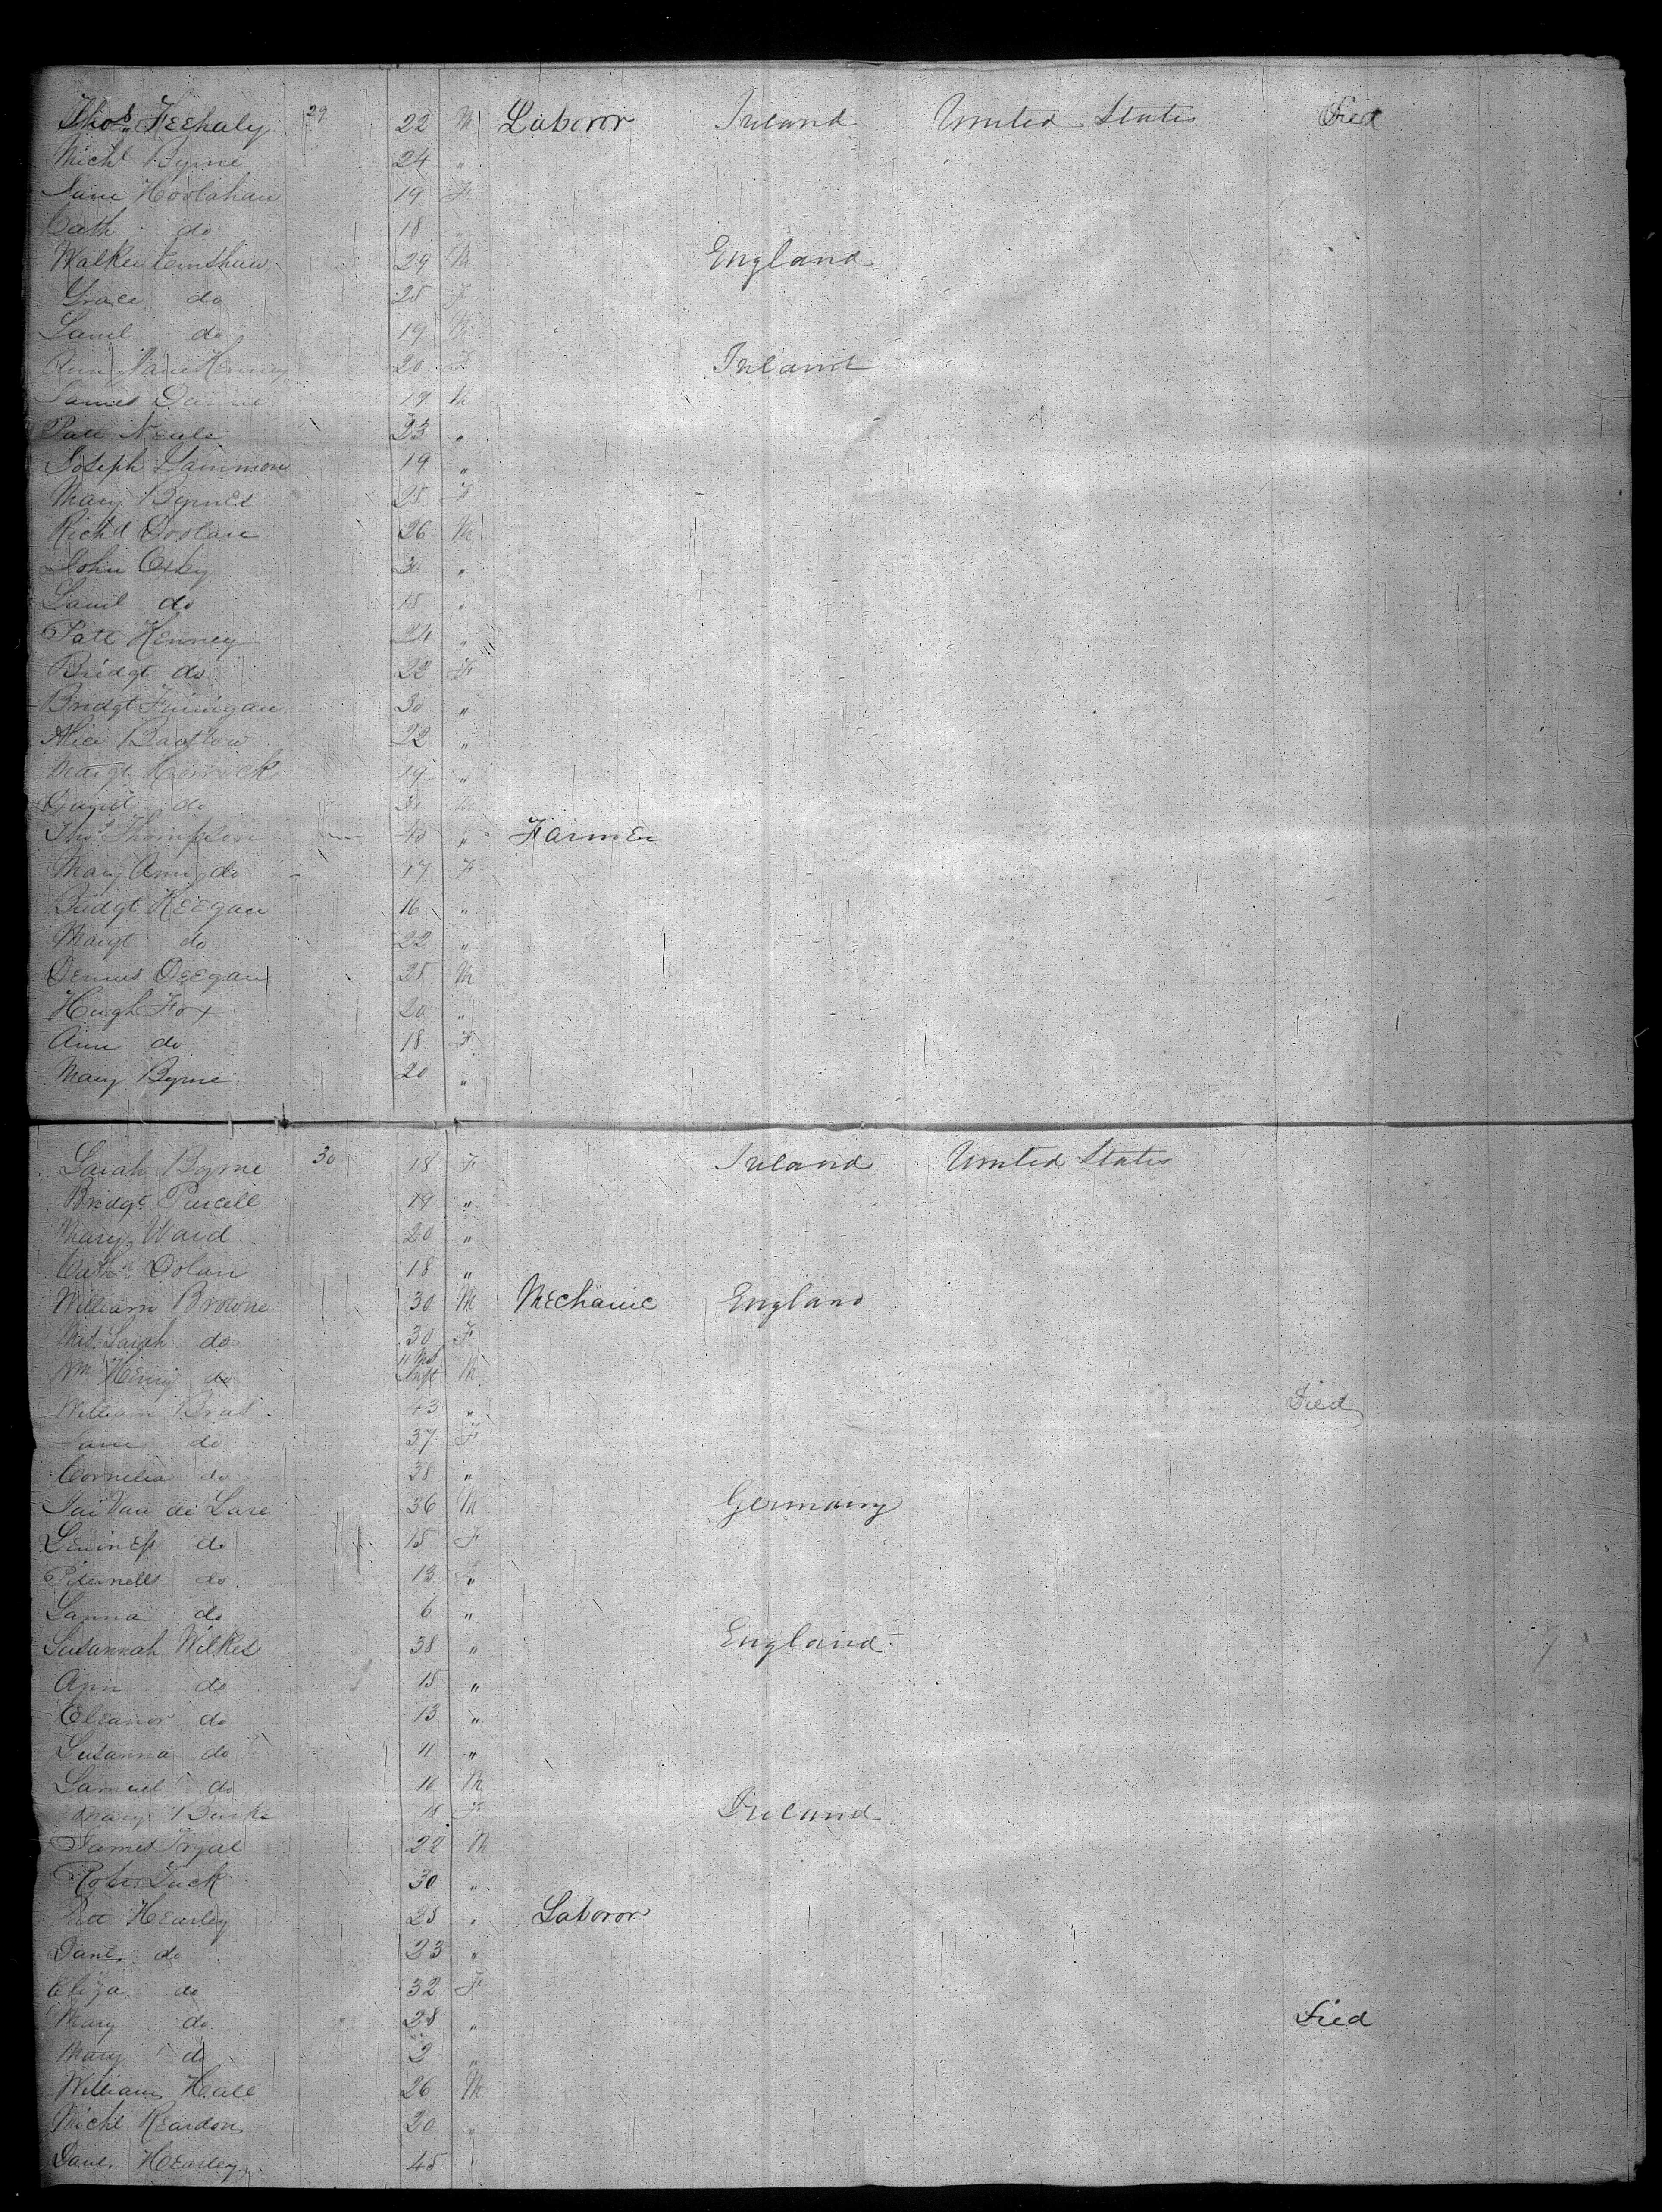 Thos Feehaly 29 22 M Laboror Ireland United States Died
Michl Byrne 24 "
Jane Hoolahan 19 F
Cath do 18 "
Walker Emshaw 29 M England
Grace do 25 F
Saml do 19 M
Ann Jane Kenney 20 F Ireland
James 19 M
Patt Neale 23 "
Joseph Gammon 19 "
Mary Byrnes 25 F
Richd Doolan 26 M
John Oxby 30 "
Saml do 18 "
Patt Kenney 24 "
Bridgt do 22 F
Bridgt Finnigan 30 "
Alice Bartlow 22 "
Margt 19 "
Daniel do M
Thos Thompson 48 " Farmer
Mary Ann do 17 F
Bridgt Keegan 16 "
Margt do 22 "
Dennis Deegan 25 M
Hugh Fox 20 "
Ann do 18 F
Mary Byrne 20 "
Sarah Byrne 30 18 F Ireland United States
Bridgt Purcell 19 "
Mary Ward 20 "
Cathn Dolan 18 "
William Browne 30 M Mechanic England
Mrs Sarah do 30 F
Wm Henry do 11 Mos Inft M
William Bras 43 " Died
Jane do 37 F
Cornelia do 38 "
Jai Van de Lare 36 M Germany
do 15 F
Piternells do 13 "
Sanna do 6 "
Susannah Wilkes 38 " England
Ann do 15 "
Eleanor do 13 "
Susanna do 11 "
Samuel do 10 M
Mary Burke 18 F Ireland
James Tryal 22 M
Robt Tuck 30 "
Patt Hearley 25 " Laboror
Danl do 23 "
Eliza do 32 F
Mary do 28 " Died
Mary do 2 "
William Hall 26 M
Michl Reardon 20 "
Danl Hearley 45 "